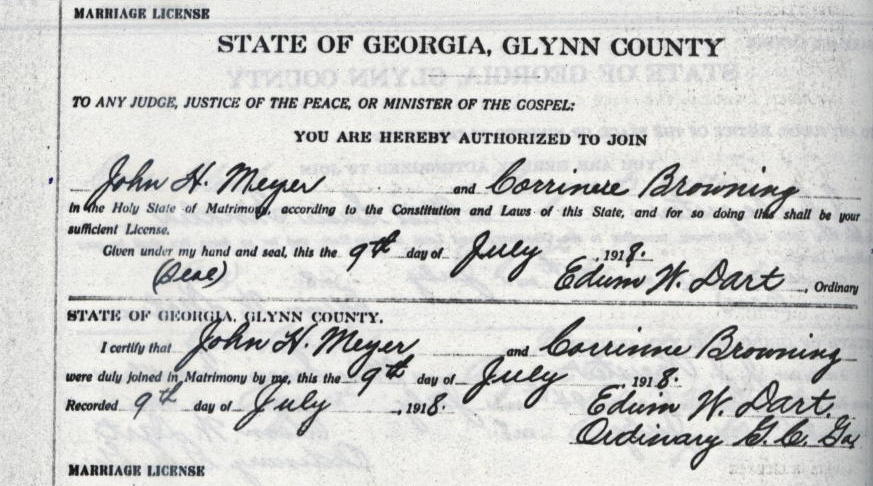 MARRIAGE LICENSE
STATE OF GEORGIA, GLYNN COUNTY
TO ANY JUDGE, JUSTICE OF THE PEACE, OR MINISTER OF THE GOSPEL:
YOU ARE HEREBY AUTHORIZED TO JOIN
John H. Meyer and Corrinne Browning
in the Holy State of Matrimony, according to the Constitution and Laws of this State, and for so doing this shall be your
sufficient License.
Given under my hand and seal, this the 9th day of July, 1918.
(Seal) Edwin W. Dart, Ordinary
STATE OF GEORGIA, GLYNN COUNTY.
I certify that John H. Meyer and Corrinne Browning
were duly joined in Matrimony by me, this the 9th day of July, 1918.
Recorded 9th day of July, 1918. Edwin W. Dart.
Ordinary G. C. Ga
MARRIAGE LICENSE